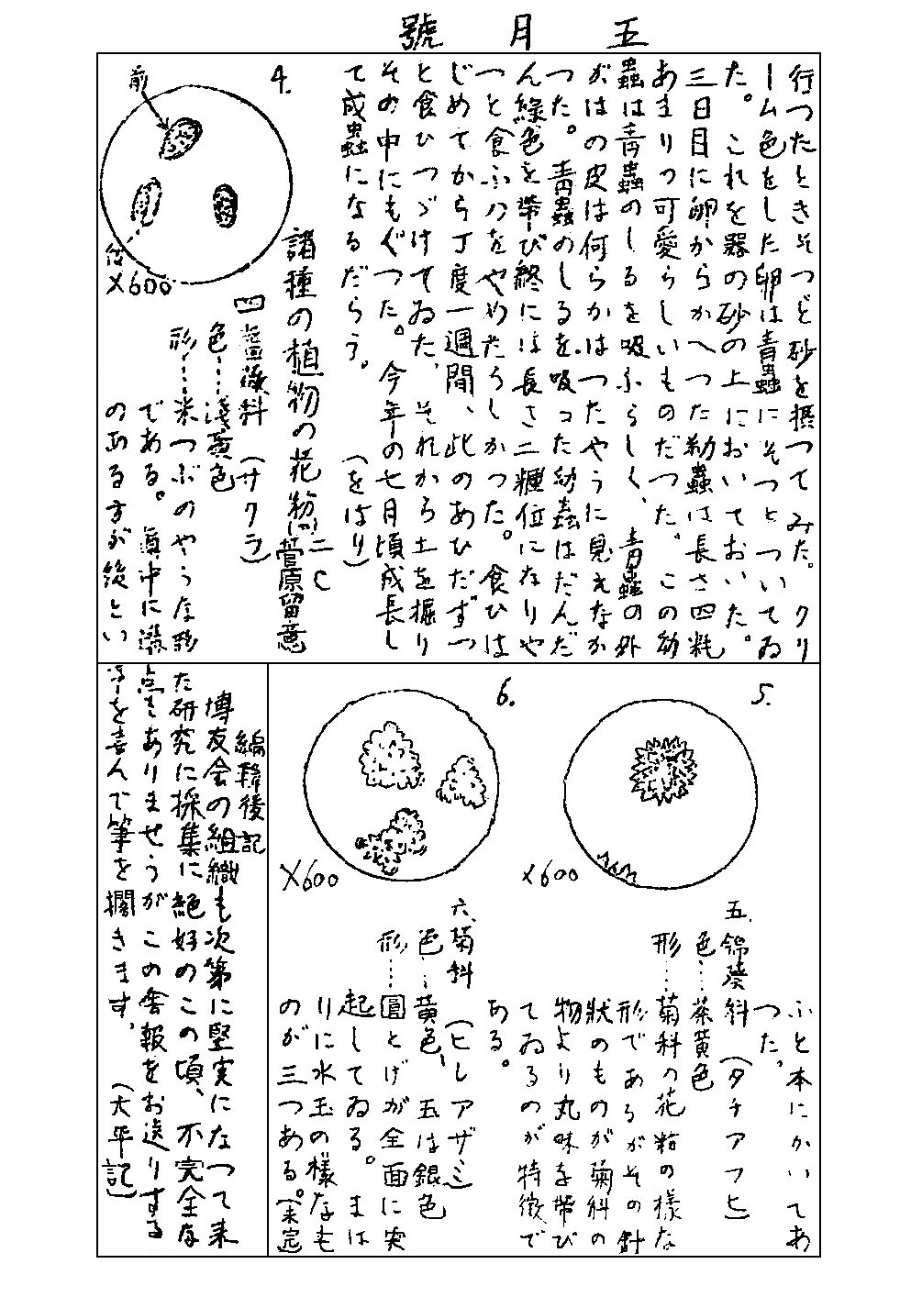 五月號
行つたときそつと砂を摂つてみた。クリ
ーム色をした卵は青蟲にそつとついてゐ
た。これを器の砂の上においておいた。
三日目に卵からかへつた幼蟲は長さ四粍
あまりの可愛らしいものだつた。この幼
蟲は青蟲のしるを吸ふらしく、青蟲の外
がはの皮は何らかはつたやうに見えなか
つた。青蟲のしるを吸った幼蟲はだんだ
ん綠色を帯び終には長さ二糎位になりや
つと食ふ󠄁のをやめたらしかつた。食ひは
じめてから丁度一週間、此のあひだずつ
と食ひつゞけてゐた。それから土を掘り
その中にもぐつた。今年の七月頃成長し
て成蟲になるだらう。（をはり）
諸種の植物の花粉(二)
二C 菅原留意
4.
前
後
×600
四 薔薇科（サクラ）
色……淺黄色
形……米つぶのやうな形
である。眞中に濃
のある方が後とい
ふと本にかいてあ
つた。
5.
×600
五.錦葵科（タチアフヒ）
色……茶黄色
形……菊科の花粉の様な
形であるがその針
狀のものが菊科の
物より丸味を帯び
てゐるのが特徴で
ある。
6.
×600
六.菊科（ヒレアザミ）
色……黄色、五は銀色
形……圓とげが全面に突
起してゐる。まは
りに水玉の様なも
のが三つある。（未完
編輯後記
博友会の組織も次第に堅実になつて来
た研究に採集に絶好のこの頃、不完全な
点もありませうがこの會報をお送りする
事を喜んで筆を擱きます。（大平記）